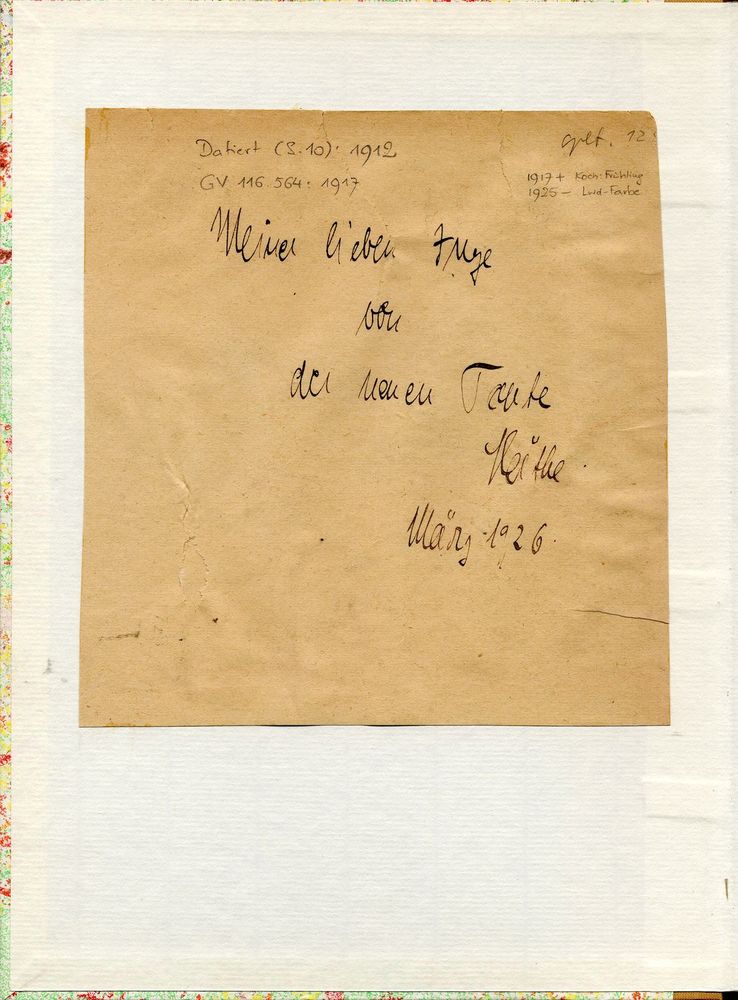 cplt. 12
Datiert (S. 10): 1912
GV 116.564: 1917
1917+ Koch: Frühling
1925— Lwd-Farbe
Meiner lieben Inge
von
der neuen Tante
Käthe.
März 1926.